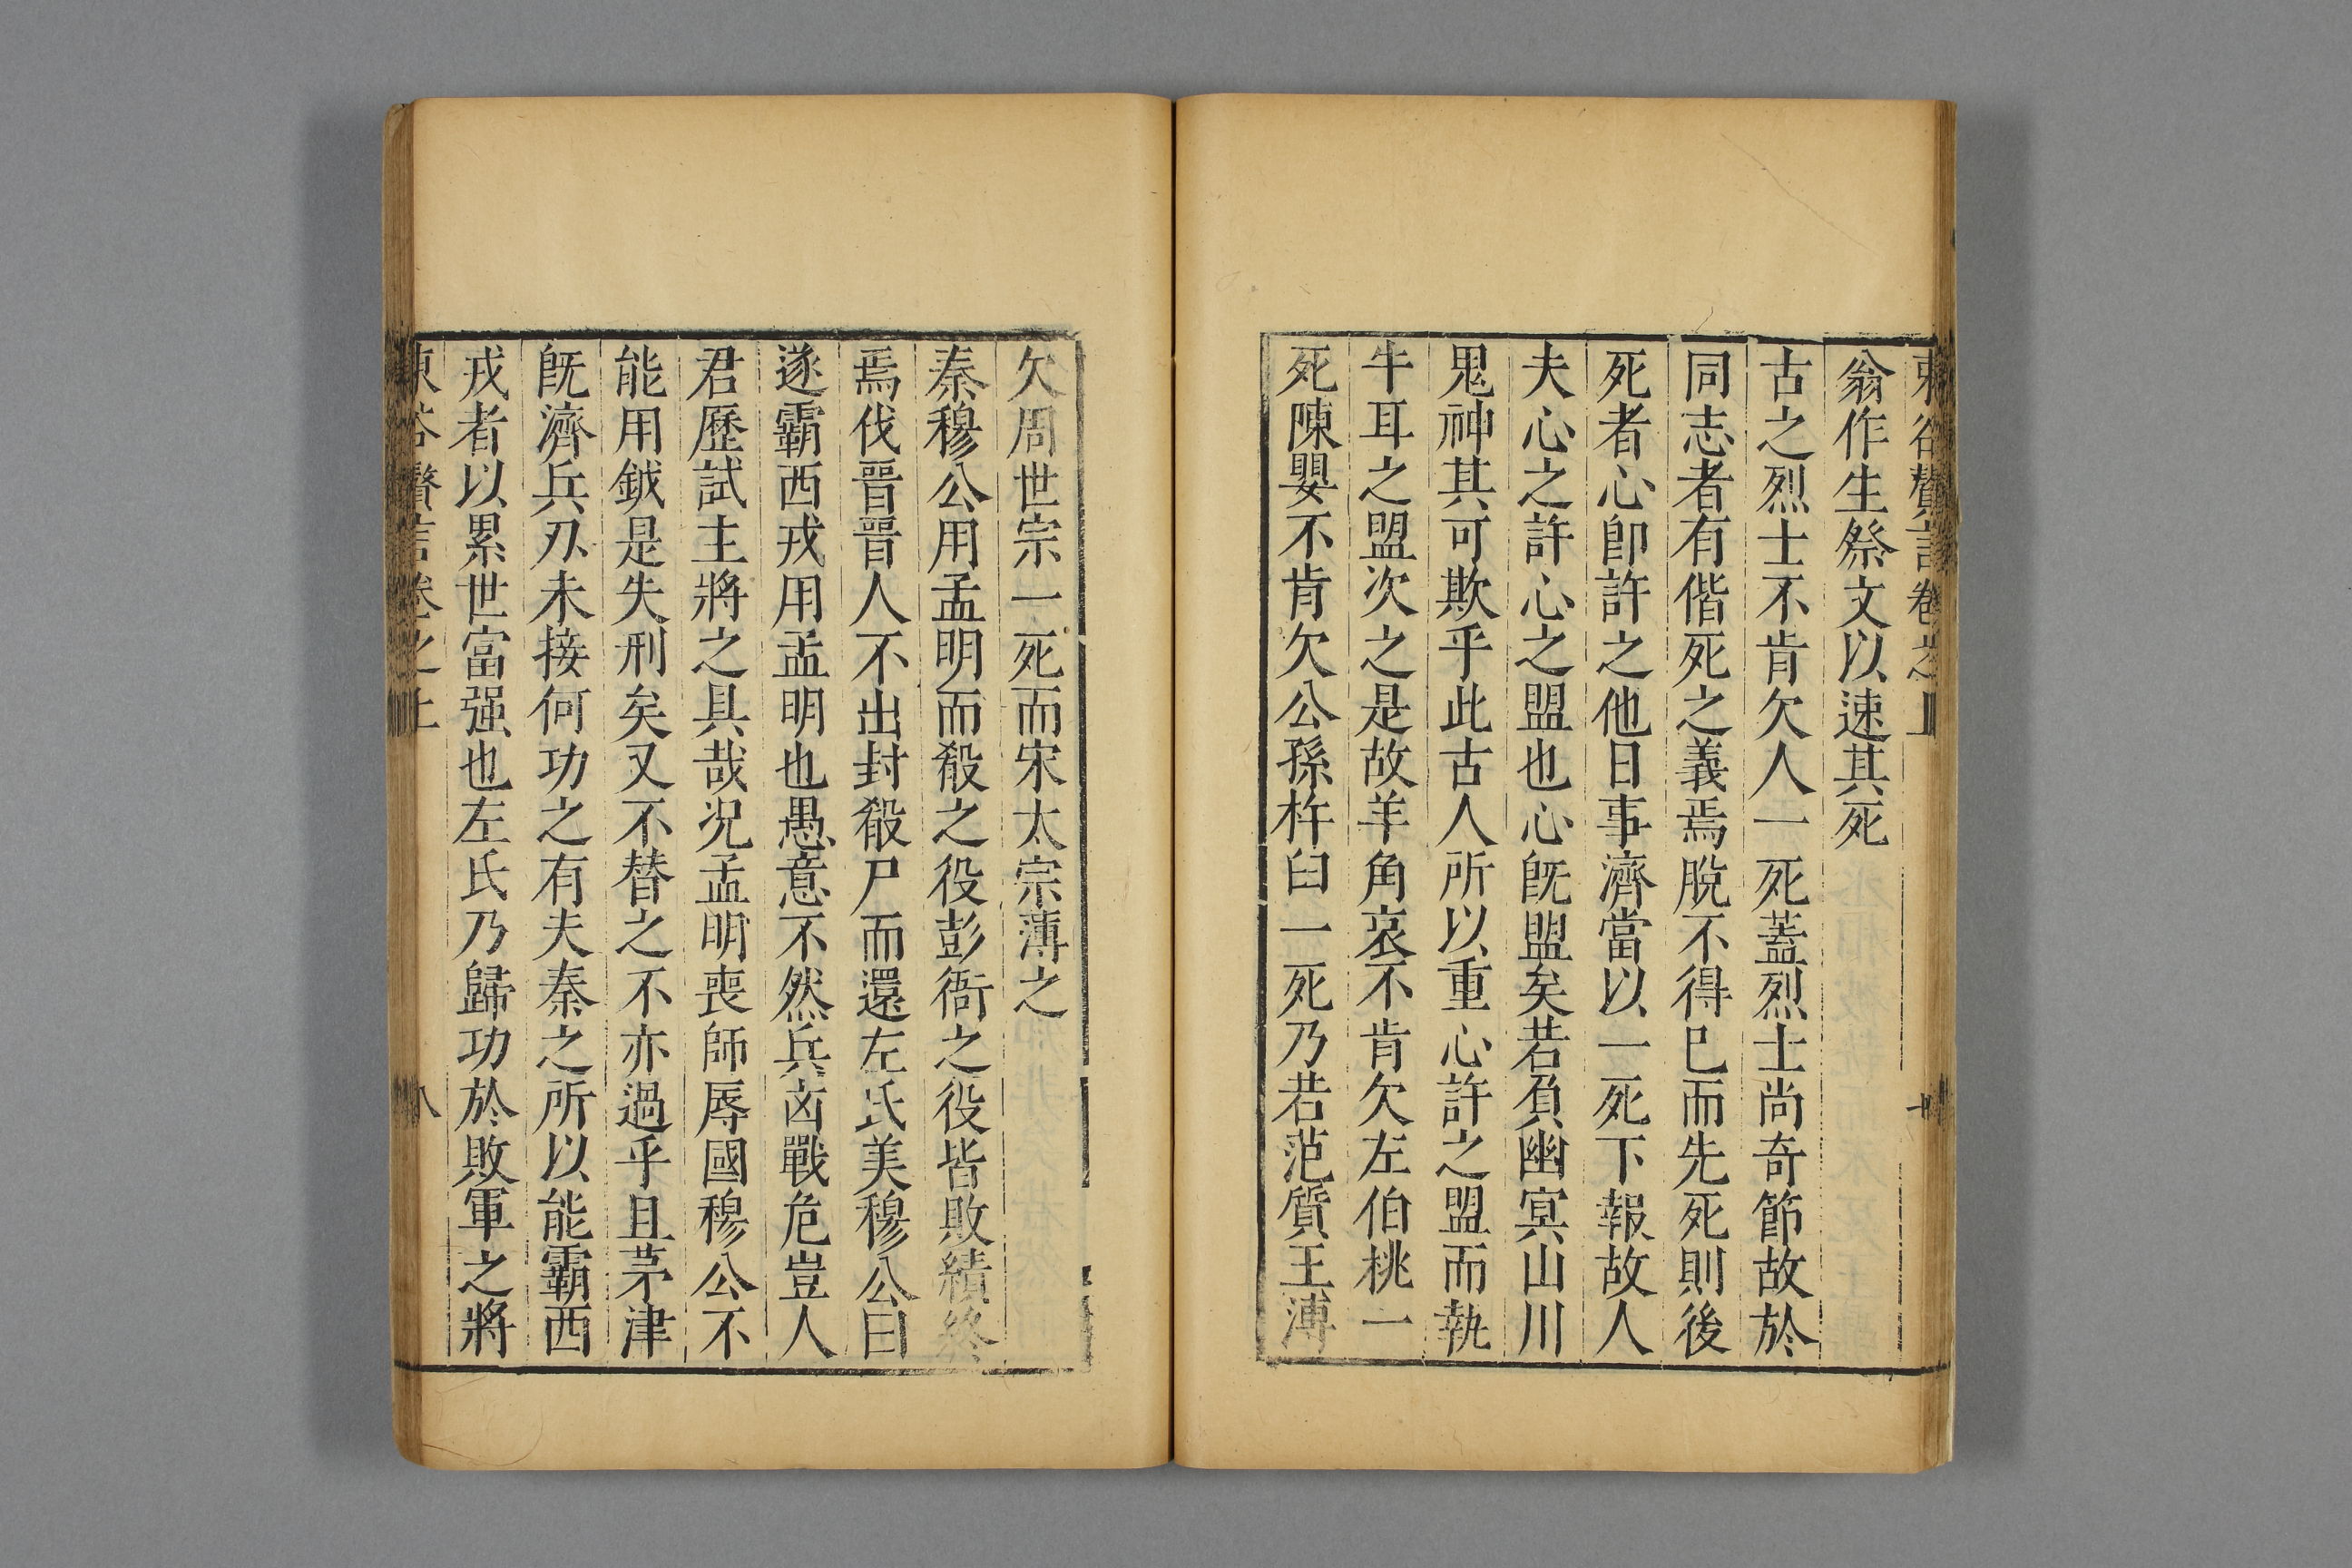 東谷贅言卷之上
翁作生祭文以速其死
古之烈士不肯欠人一死蓋烈士尚奇節故於
同志者有偕死之義焉脫不得已而先死則後
死者心卽許之他日事濟當以一死下報故人
夫心之許心之盟也心旣盟矣若負幽冥山川
鬼神其可欺乎此古人所以重心許之盟而執
牛耳之盟次之是故羊角哀不肯欠左伯桃一
死陳嬰不肯欠公孫杵臼一死乃若范質王溥
欠周世宗一死而宋太宗薄之
秦穆公用孟明而殽之役彭衙之役皆敗績終
焉伐晉晉人不出封殽尸而還左氏美穆公曰
遂霸西戎用孟明也愚意不然兵凶戰危豈人
君歷試主將之具哉況孟明喪師辱國穆公不
能用鉞是失刑矣又不替之不亦過乎且茅津
旣濟兵刃未接何功之有夫秦之所以能霸西
戎者以累世富强也左氏乃歸功於敗軍之將
東谷贅言卷之上 八